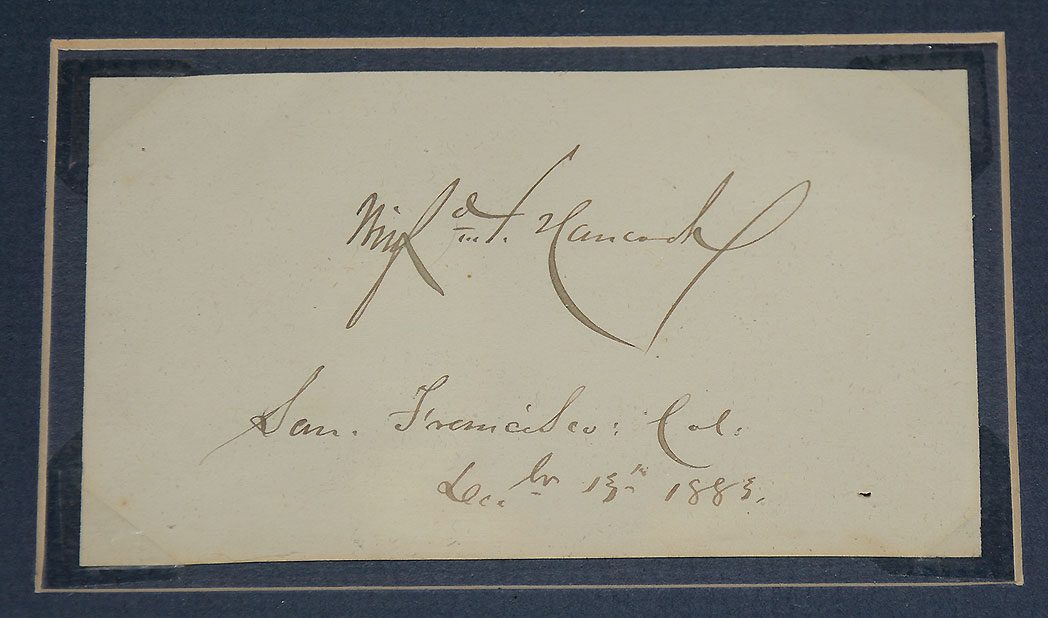 Winfd S. Hancock
San. Francisco: Cal:
Decbr 13th 1883.